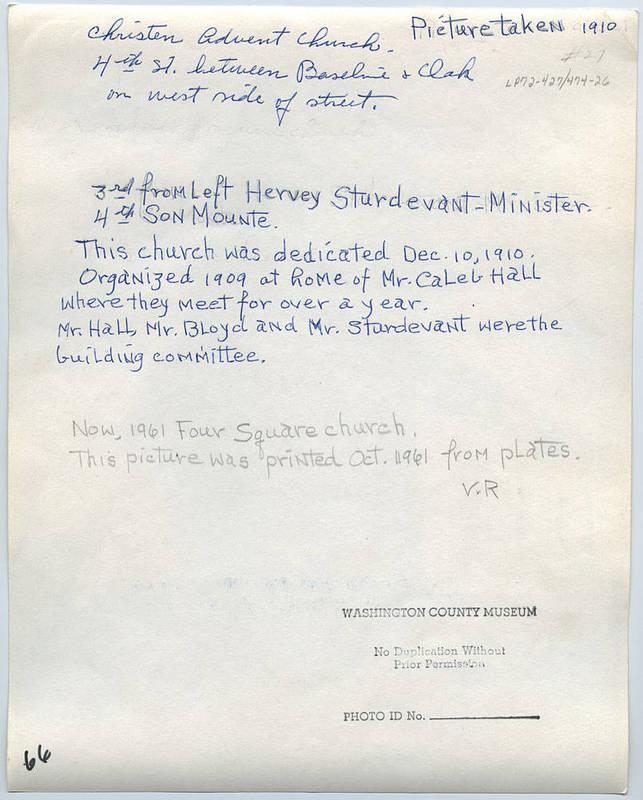 Christen Advent Church.
Picture taken 1910
#27
4th St. between Baseline & Oak
LP72-427/474-26
on west side of street.
3rd from Left Hervey Sturdevant - Minister.
4th Son Mounte.
This church was dedicated Dec. 10, 1910.
Organized 1909 at home of Mr. Caleb Hall
where they meet for over a year.
Mr. Hall, Mr. Bloyd and Mr. Sturdevant were the
building committee.
Now, 1961 Four Square church.
This picture was printed Oct. 1961 from plates.
V.R
WASHINGTON COUNTY MUSEUM
No Duplication Without
Prior Permission
PHOTO ID No.
66